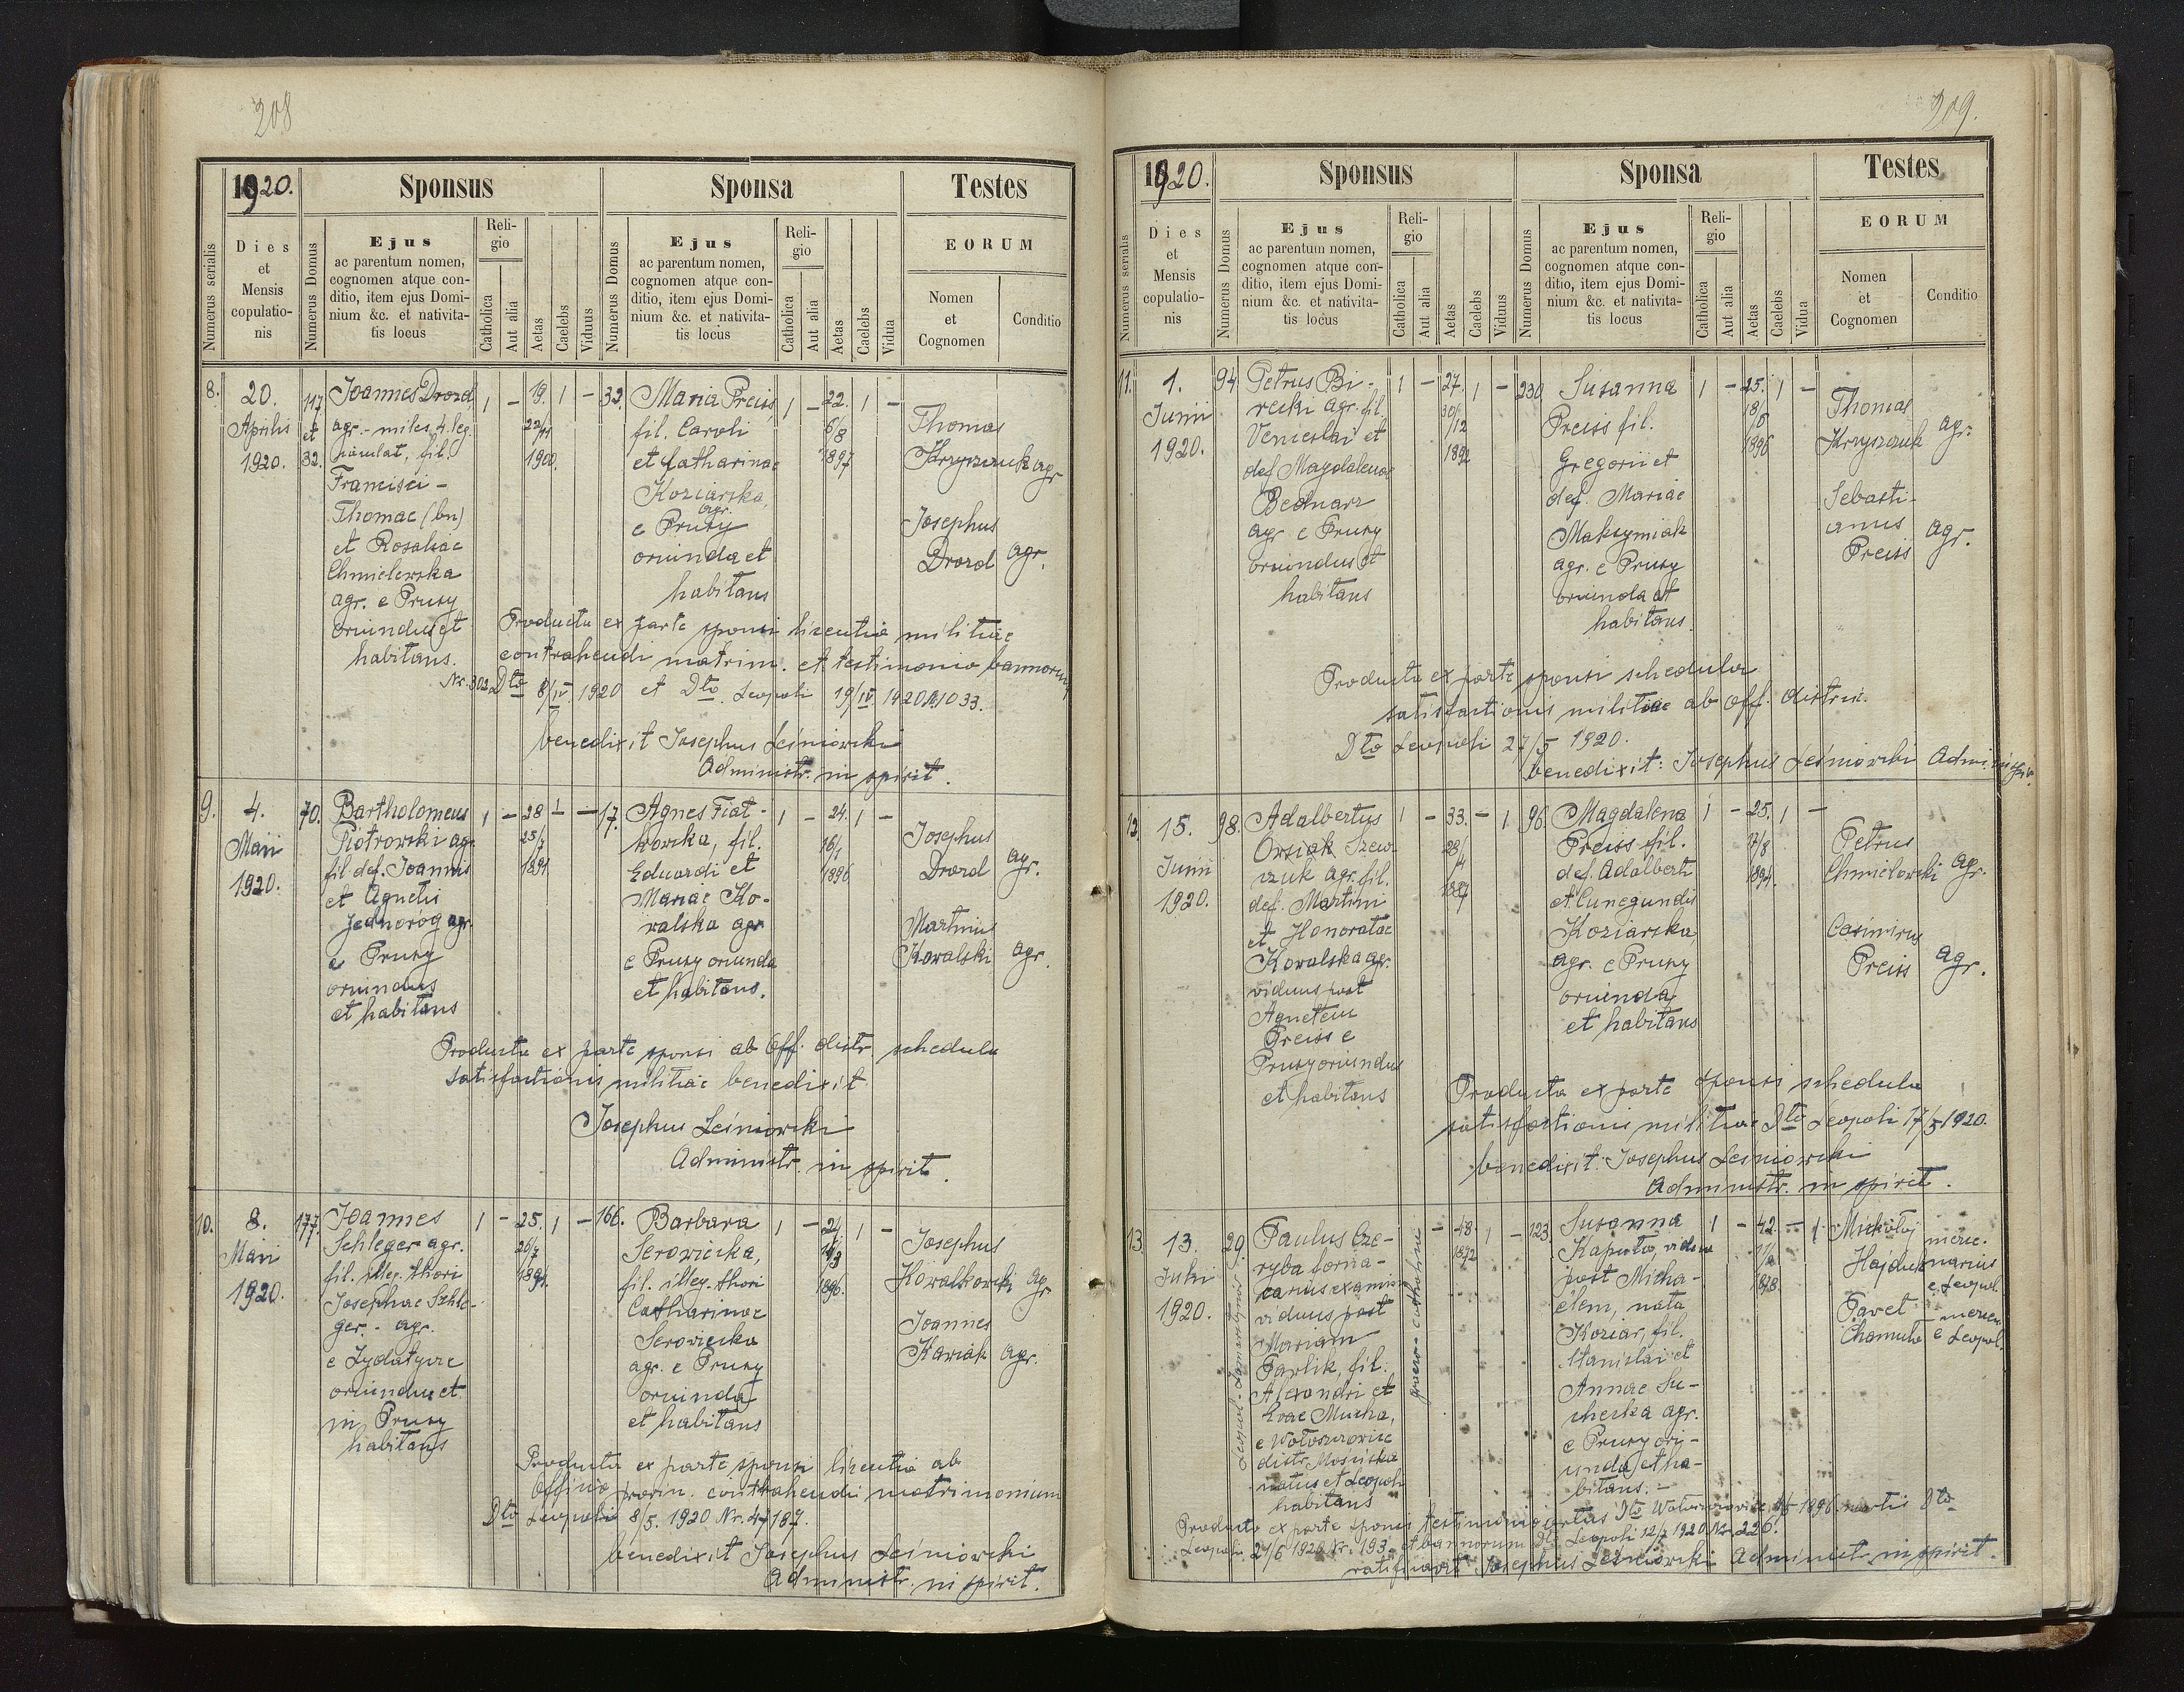 208
1920.
Sponsus
Sponsa
Testes
Numerus serialis
Dies
et
Mensis
copulatio-
nis
Numerus Domus
Ejus
ac parentum nomen,
cognomen atque con-
ditio, item ejus Domi-
nium &c. et nativita-
tis locus
Reli-
gio
Catholica
Aut alia
Aetas
Caelebs
Viduus
Numerus Domus
Ejus
ac parentum nomen,
cognomen atque con-
ditio, item ejus Domi-
nium &c. et nativita-
tis locus
Reli-
gio
Catholica
Aut alia
Aetas
Caelebs
Vidua
EORUM
Nomen
et
Cognomen
Conditio
8.
20.
Aprilis
1920.
117
et
32.
Joannes Drozd
agr. - miles 4. leg.
fil.
Francisci -
Thomae (bn)
et Rosaliae
Chmielewska
agr. e Prusy
oriundus et
habitans.
1 - 19. 1 -
22/11
1900.
32.
Maria Preiss
fil. Caroli
et Catharinae
Koziarska,
agr.
e Prusy
oriunda et
habitans
1 - 22. 1 -
6/8
1897
Thomas
Krzyszczuk agr
Josephus
Drozd agr.
Producta ex parte sponsi licentia militiae
contrahendi matrim. et testimonio bannorum
Nr. 302 Dto 8/IV. 1920 et Dto. Leopoli 19/IV. 1920 N 1033.
benedixit Josephus Leśniowski
Administr. in spirit.
9.
4.
Maii
1920.
70.
Bartholomeus
Piotrowski agr.
fil. def. Joannis
et Agnetis
Jednorog agr.
e Prusy
oriundus
et habitans
1 - 28 1 -
25/7
1891
17.
Agnes Fiat-
kowska, fil.
Eduardi et
Mariae Ko-
walska agr
e Prusy oriunda
et habitans.
1 - 24. 1 -
16/1
1896
Josephus
Drozd agr.
Martinus
Kowalski agr.
Producta ex parte sponsi ab Off. distr. schedula
satisfactionis militiae benedixit
Josephus Leśniowski
Administr. in spirit.
10.
8.
Maii
1920.
177.
Joannes
Schleger agr.
fil. illeg. thori
Josephae Schle-
ger - agr.
e Zydatycze
oriundus et
in Prusy
habitans
1 - 25. 1 -
26/7
1894.
166.
Barbara
Serowiecka,
fil. illeg. thori
Catharinae
Serowiecka
agr. e Prusy
oriunda
et habitans
1 - 24 1 -
1896.
Josephus
Kowalkowski agr
Joannes
Kawiak agr.
Producta ex parte sponsi licentia ab
Officio provin. contrahendi matrimonium
Dto Leopoli 8/5. 1920 Nr. 47187.
benedixit Josephus Leśniowski
Administr. in spirit.
209.
1920.
Sponsus
Sponsa
Testes
Numerus serialis
Dies
et
Mensis
copulatio-
nis
Numerus Domus
Ejus
ac parentum nomen,
cognomen atque con-
ditio, item ejus Domi-
nium &c. et nativita-
tis locus
Reli-
gio
Catholica
Aut alia
Aetas
Caelebs
Viduus
Numerus Domus
Ejus
ac parentum nomen,
cognomen atque con-
ditio, item ejus Domi-
nium &c. et nativita-
tis locus
Reli-
gio
Catholica
Aut alia
Aetas
Caelebs
Vidua
EORUM
Nomen
et
Cognomen
Conditio
11.
1.
Junii
1920.
94.
Petrus Bi-
recki agr. fil.
Venceslai et
def Magdalenae
Bednarz
agr e Prusy
oriundus et
habitans
1 - 27. 1 -
30/12
1892
230
Susanna
Preiss fil.
Gregorii et
def. Mariae
Maksymiak
agr. e Prusy
oriunda et
habitans.
1 - 25. 1 -
18/8
1896
Thomas
Krzyszczuk agr.
Sebasti-
anus
Preiss agr.
Producta ex parte sponsi schedula
satisfactionis militiae ab Off. district.
Dto Leopoli 27/5 1920.
benedixit: Josephus Leśniowski Admi. in spir.
12.
15.
Junii
1920.
98.
Adalbertus
Orsiak Szew-
czuk agr. fil.
def. Martini
et Honoratae
Kowalska agr.
viduus post
Agnetem
Preiss e
Prusy oriundus
et habitans
1 - 33. - 1
28/4
1887
96.
Magdalena
Preiss fil.
def. Adalberti
et Cunegundis
Koziarska
agr. e Prusy
oriunda
et habitans
1 - 25. 1 -
17/8
1894.
Petrus
Chmielowski agr.
Casimirus
Preiss agr.
Producta ex parte sponsi schedula
satisfactionis militiae Dto Leopoli 17/5 1920.
benedixit: Josephus Leśniowski
Administr. in spirit.
13.
13.
Julii
1920.
29.
Paulus Cze-
ryba
viduus post
Mariam
Pavlik, fil.
Alexandri et
Evae Mucha,
e Wołoszczowice
distr. Mościska
natus et Leopoli
habitans
graeco-catholicus
- 48 1 -
1872
123.
Susanna
Kaputa, vidua
post Micha-
elem, nata
Koziar, fil.
Stanislai et
Annae Su-
checka agr.
e Prusy ori-
unda et ha-
bitans. -
1 - 42. - 1
1878.
Mikołaj
Hajduk
merce-
narius
e Leopol.
Pavet
Chamuła
mercen
e Leopol.
Producto ex parte sponsi testimonio ortus Dto 1896. mortis Dto
Leopoli 21/6 1920 Nr. 193. et bannorum Dto Leopoli 12/7 1920 Nr. 226.
Josephus Leśniowski Administr. in spirit.